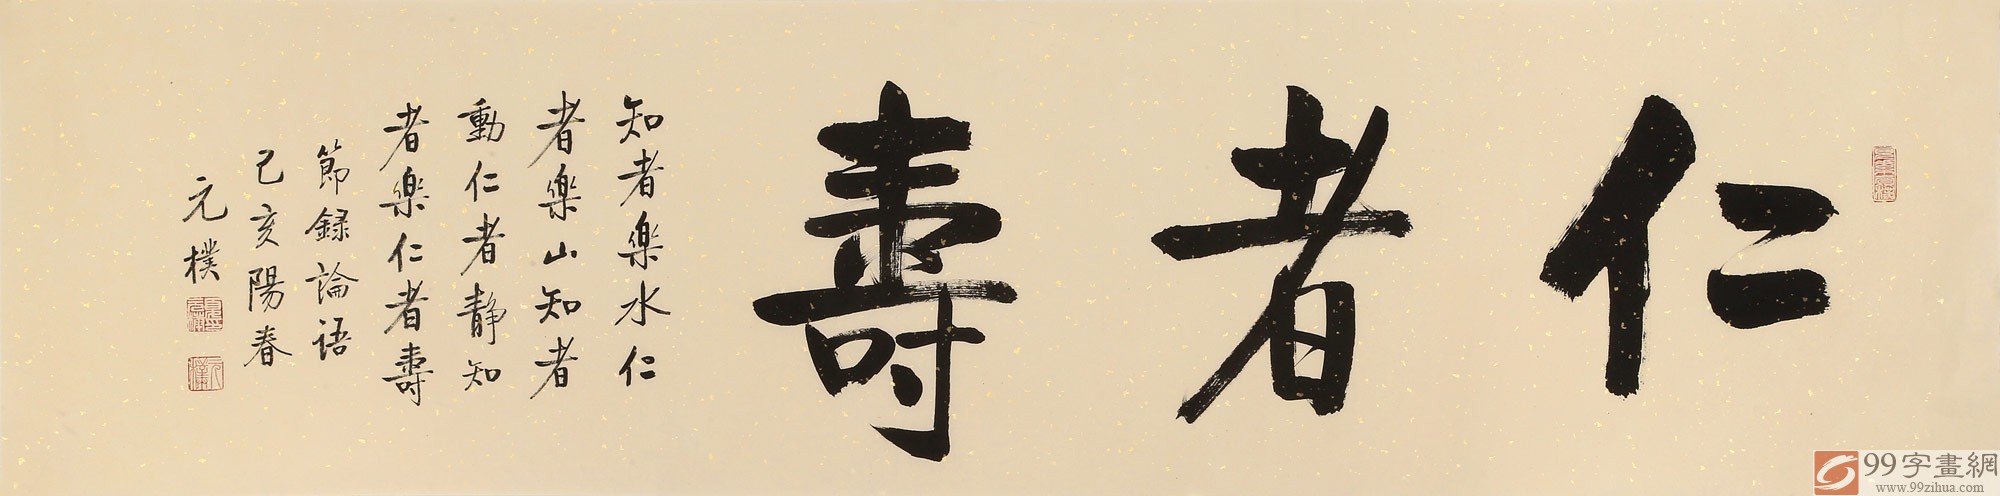 仁者壽
知者樂水仁
者樂山知者
動仁者靜知
者樂仁者壽
節録論语
己亥陽春
元樸
99字畫網
www.99zihua.com